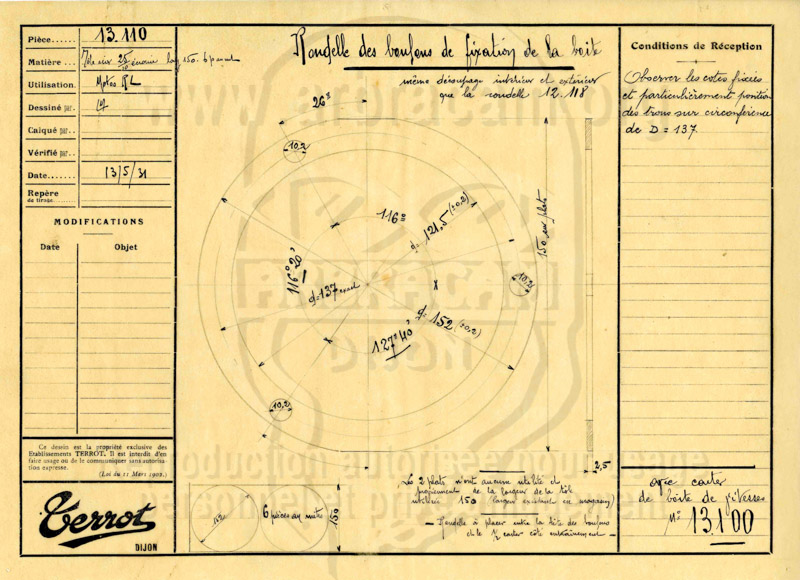 Pièce...... 13.110
Matière... Tôle aux 25/10 larg 150. 6 p au mt
Utilisation. Motos RL
Dessiné par.
Calqué par..
Vérifié par..
Date....... 13/5/31
Repère
de tirage.
MODIFICATIONS
Date Objet
Ce dessin est la propriété exclusive des
Etablissements TERROT. Il est interdit d'en
faire usage ou de le communiquer sans autorisa-
tion expresse.
(Loi du 11 Mars 1902.)
Terrot
DIJON
Rondelle des boulons de fixation de la boite
même découpage intérieur et extérieur
que la rondelle 12.118
26
10,2
116°
d=121,5 (±0,2)
150 sur plats
116°20'
d=137 exact
10,2
d=152 (±0,2)
127°40'
10,2
2,5
Les 2 plats n'ont aucune utilité et
proviennent de la largeur de la tôle
utilisée 150 (largeur existant en magasin)
— Rondelle à placer entre la tête des boulons
et le 1/2 carter côté entraînement —
152
6 pièces au mètre
150
Conditions de Réception
Observer les cotes fixées
et particulièrement position
des trous sur circonférence
de D = 137.
avec carter
de boîte de vitesses
N° 13100
ARTRACAN
DIJON